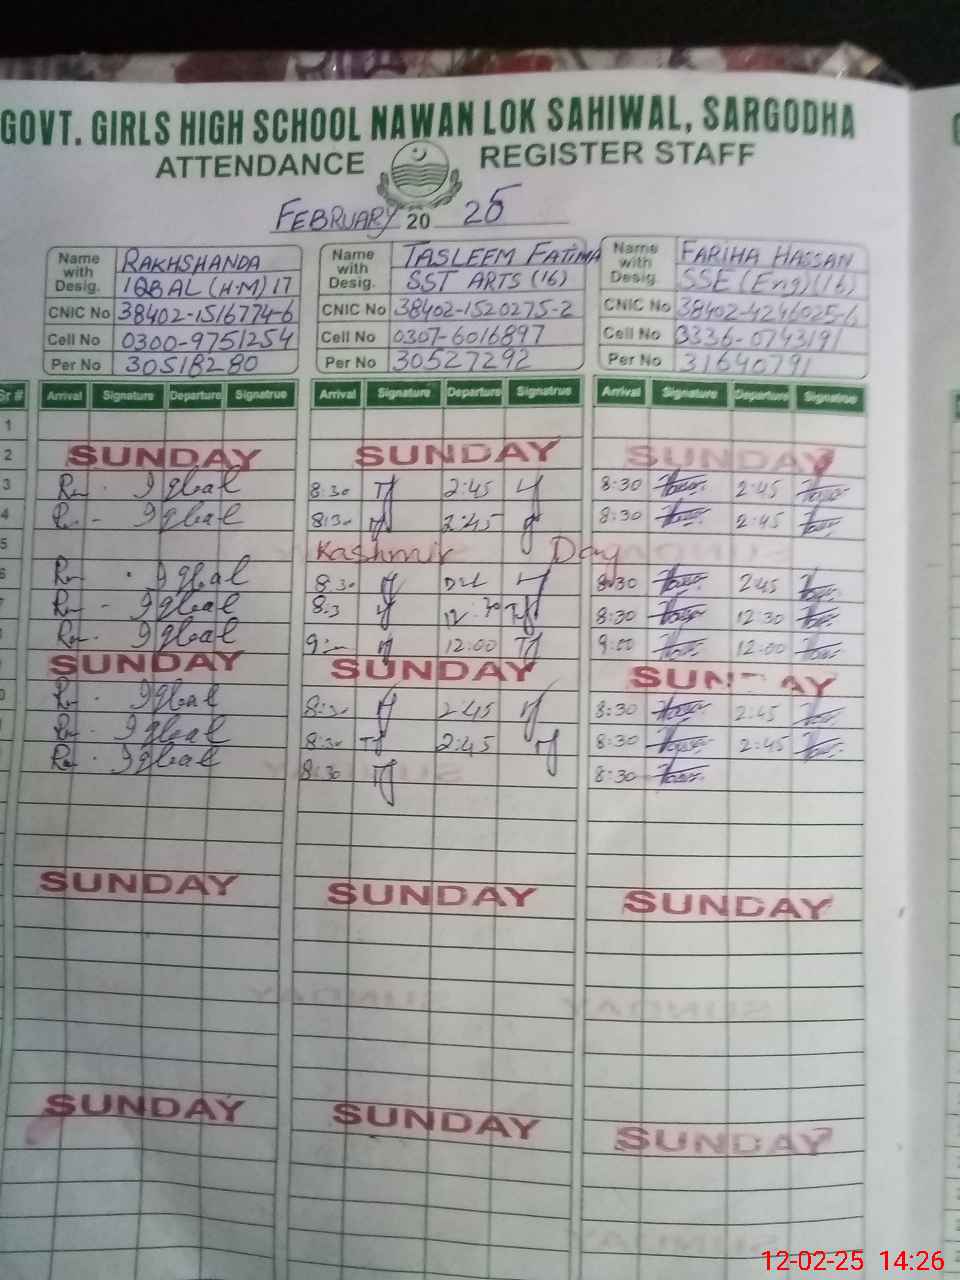 GOVT. GIRLS HIGH SCHOOL NAWAN LOK SAHIWAL, SARGODHA
ATTENDANCE REGISTER STAFF
FEBRUARY 20 25
Name with Desig. RAKHSHANDA IQBAL (H.M) 17
CNIC No 38402-1516774-6
Cell No 0300-9751254
Per No 30518280
Name with Desig. TASLEEM FATIMA SST ARTS (16)
CNIC No 38402-1520275-2
Cell No 0307-6016897
Per No 30527292
Name with Desig. FARIHA HASSAN SSE (Eng) (16)
CNIC No 38402-4246025-6
Cell No 0336-0743191
Per No 31640791
Sr # Arrival Signature Departure Signatrue Arrival Signature Departure Signatrue Arrival Signature Departure Signatrue
1
2 SUNDAY SUNDAY SUNDAY
3 Iqbal 8:30 2:45 8:30 2:45
4 Iqbal 8:30 2:45 8:30 2:45
5 Kashmir Day
6 Iqbal 8:30 8:30 2:45
Iqbal 8:3 12:30 8:30 12:30
Iqbal 12:00 9:00 12:00
SUNDAY SUNDAY SUNDAY
Iqbal 8:30 2:45 8:30 2:45
Iqbal 8:30 2:45 8:30 2:45
Iqbal 8:30 8:30
SUNDAY SUNDAY SUNDAY
SUNDAY SUNDAY SUNDAY
12-02-25 14:26